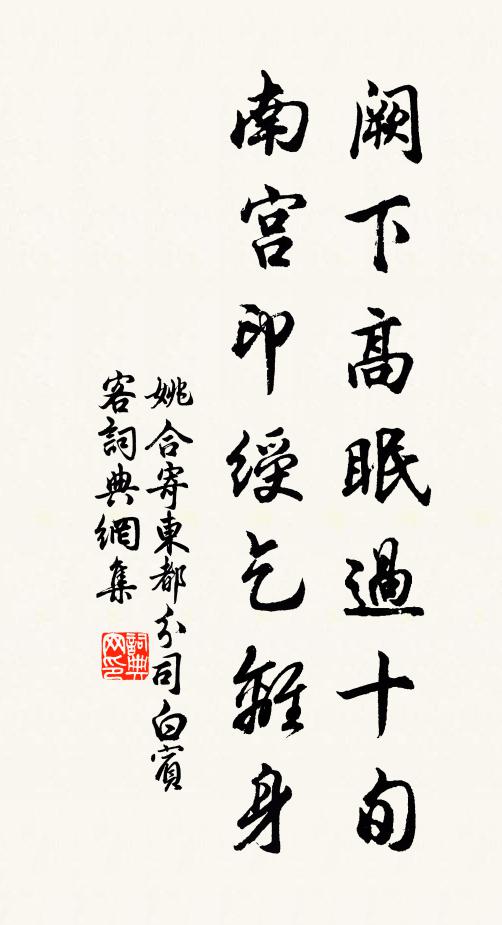 闕下高眠過十旬
南宮印綬乞離身
姚合寄東都分司白賓
客詞典網集
詞典网印